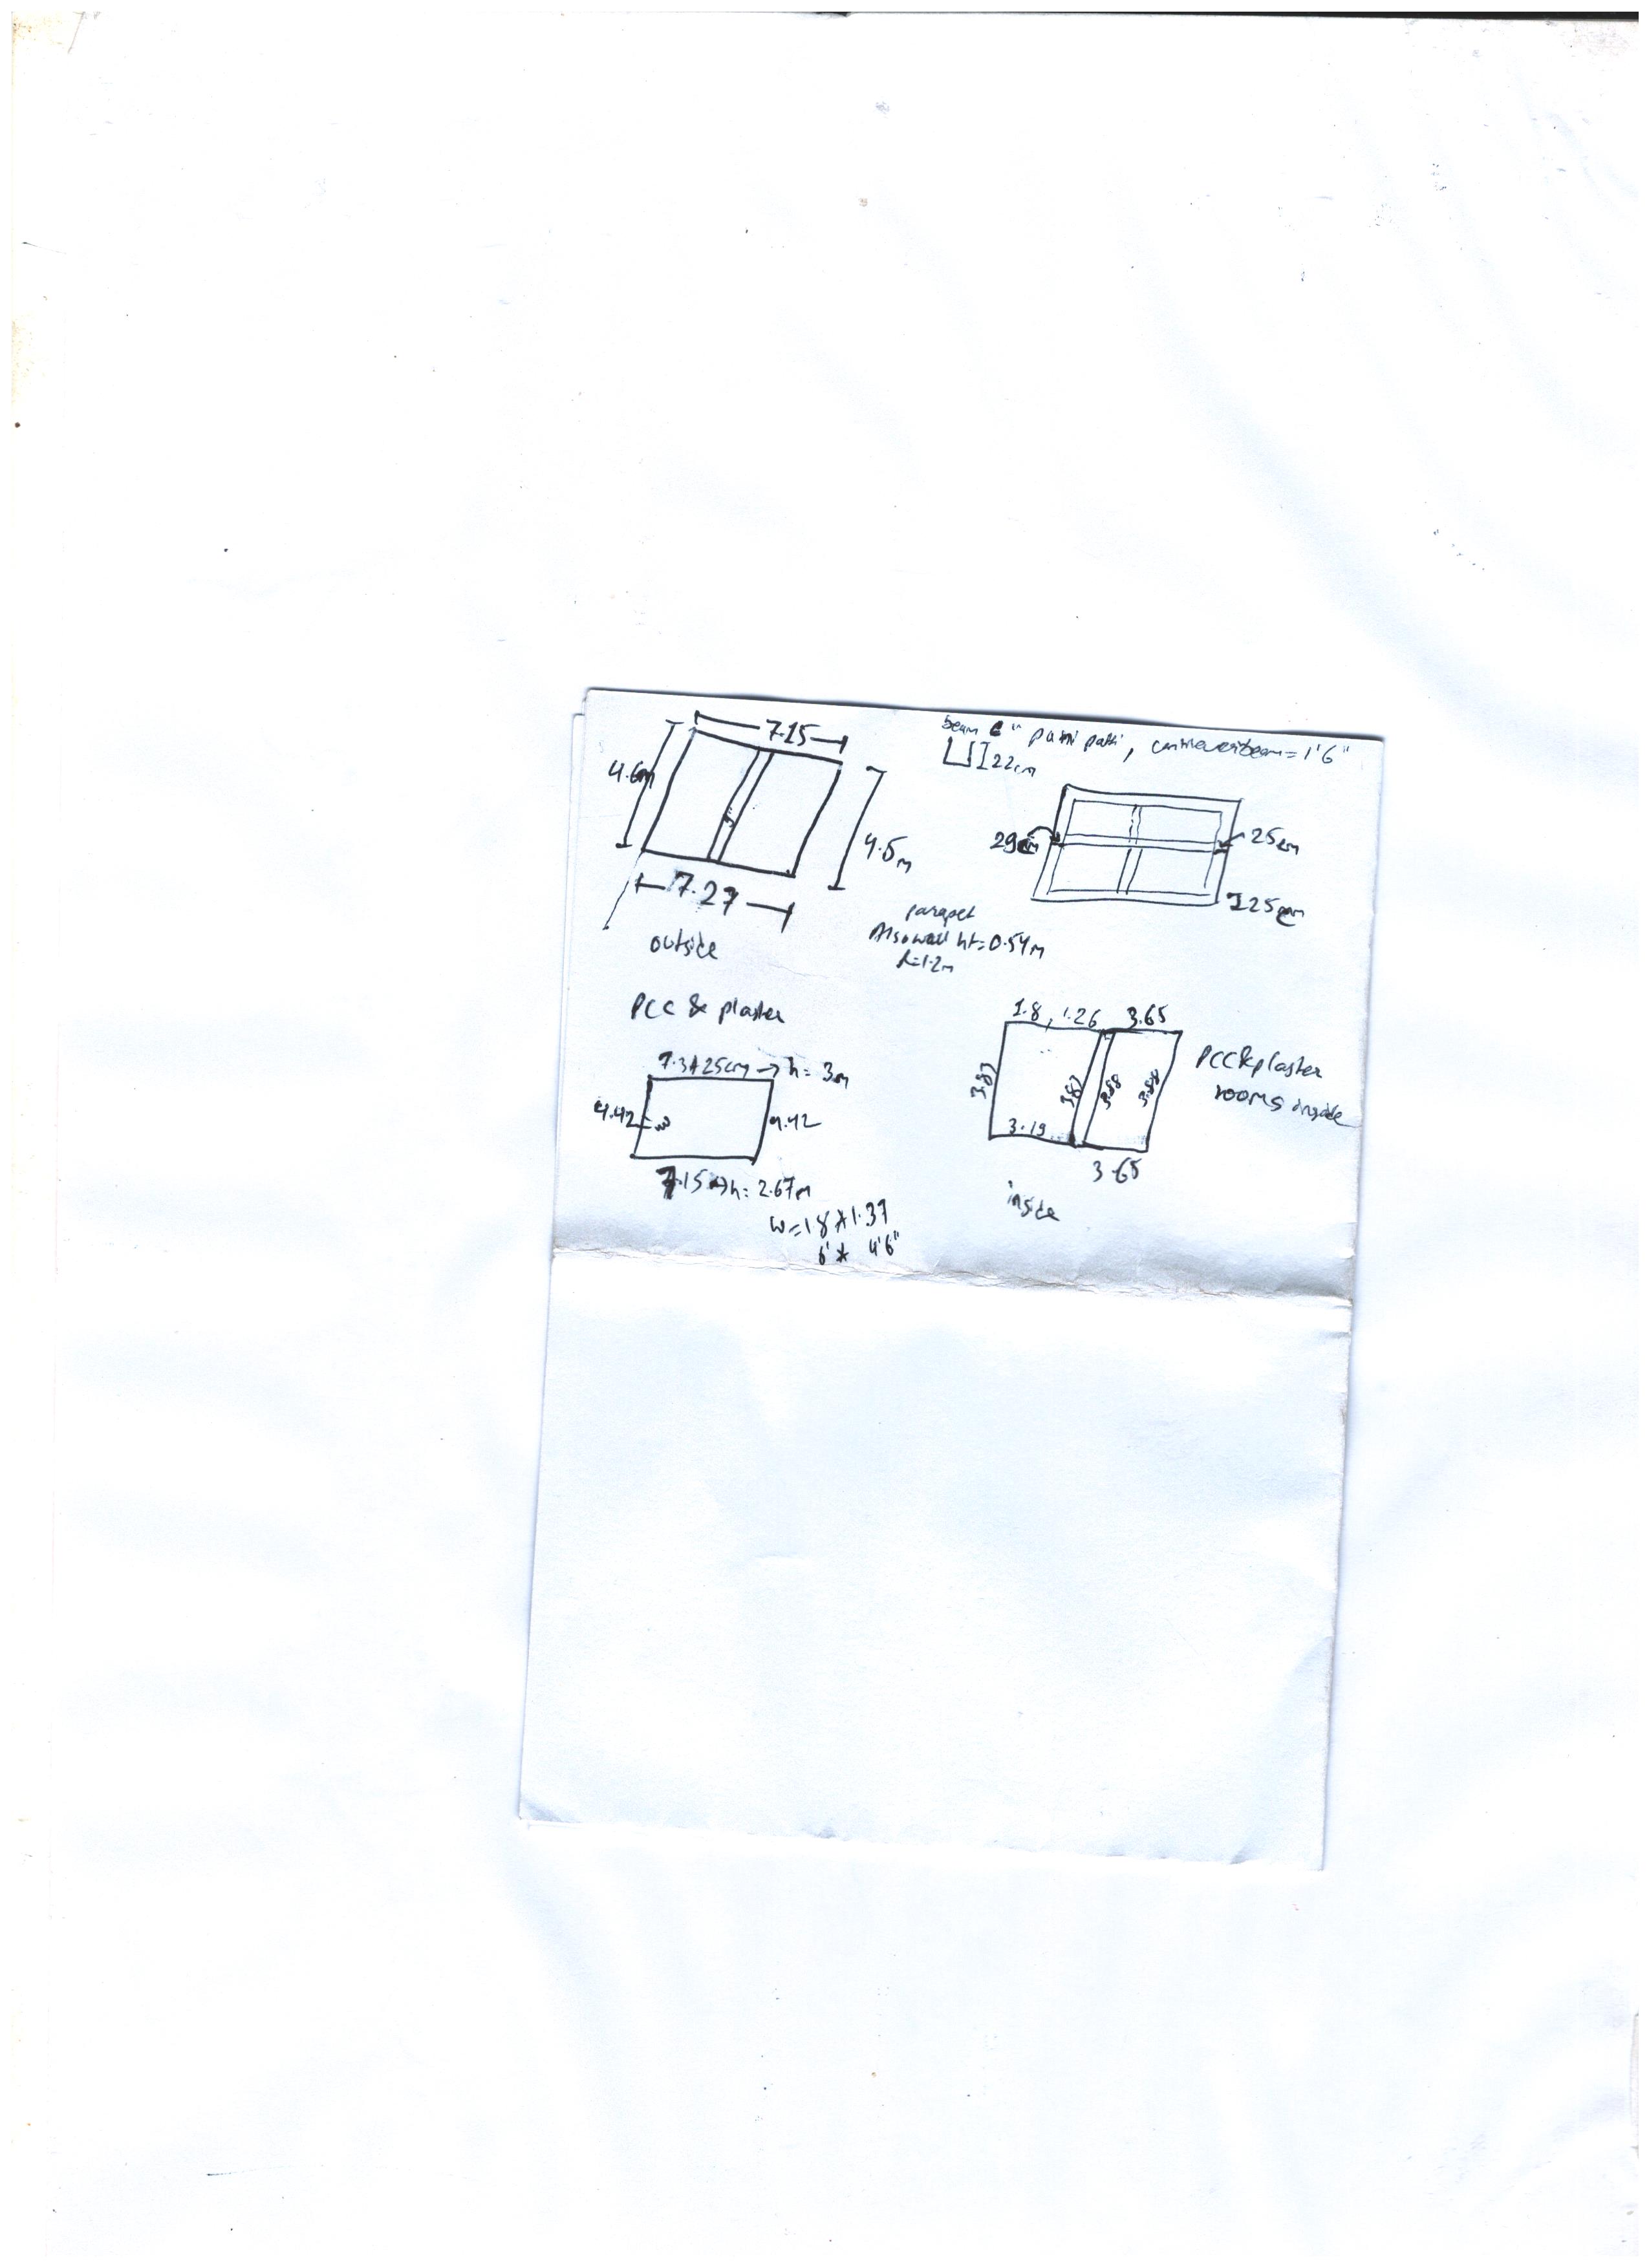 7.15
4.6m
3"
4.5m
7.27
outside
beam 6" patti patti, cantileverbeam = 1'6"
22cm
29cm
25cm
25cm
parapet
Also wall ht = 0.54m
h=1.2m
PCC & plaster
7.3+25cm → h = 3m
4.42
w
4.42
7.15 → h = 2.67m
w = 1.8 * 1.37
6' * 4'6"
1.8, 1.26 3.65
3.87
3.87
3.88
3.88
3.19
3.65
PCC & plaster
rooms inside
inside